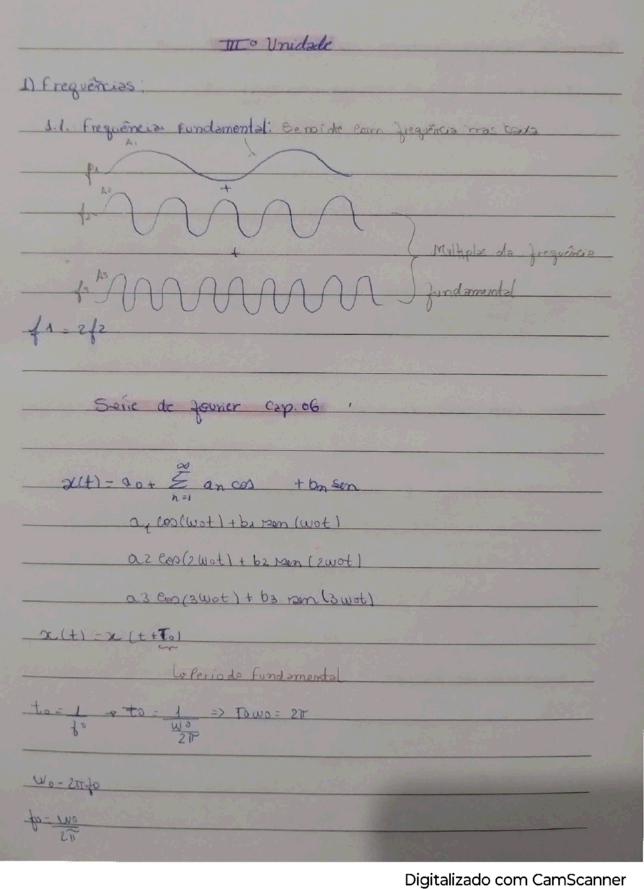 IIIº Unidade
1) Frequências:
1.1. Frequência Fundamental: Senoide com frequência mas baxa
A1
f1
+
A2
f2
+
Multiplos da frequência
A3
f3
fundamental
f1 = 2f2
Série de fourier cap. 06
x(t) = a0 + ∑ n=1 ∞ an cos + bn sen
a1 cos(w0t) + b1 sen (w0t)
a2 cos(2w0t) + b2 sen (2w0t)
a3 cos(3w0t) + b3 sen (3w0t)
x(t) = x (t+T0)
↳ Periodo fundamental
t0 = 1/f0 → t0 = 1/(w0/2π) => T0w0 = 2π
w0 = 2πf0
f0 = w0/2π
Digitalizado com CamScanner